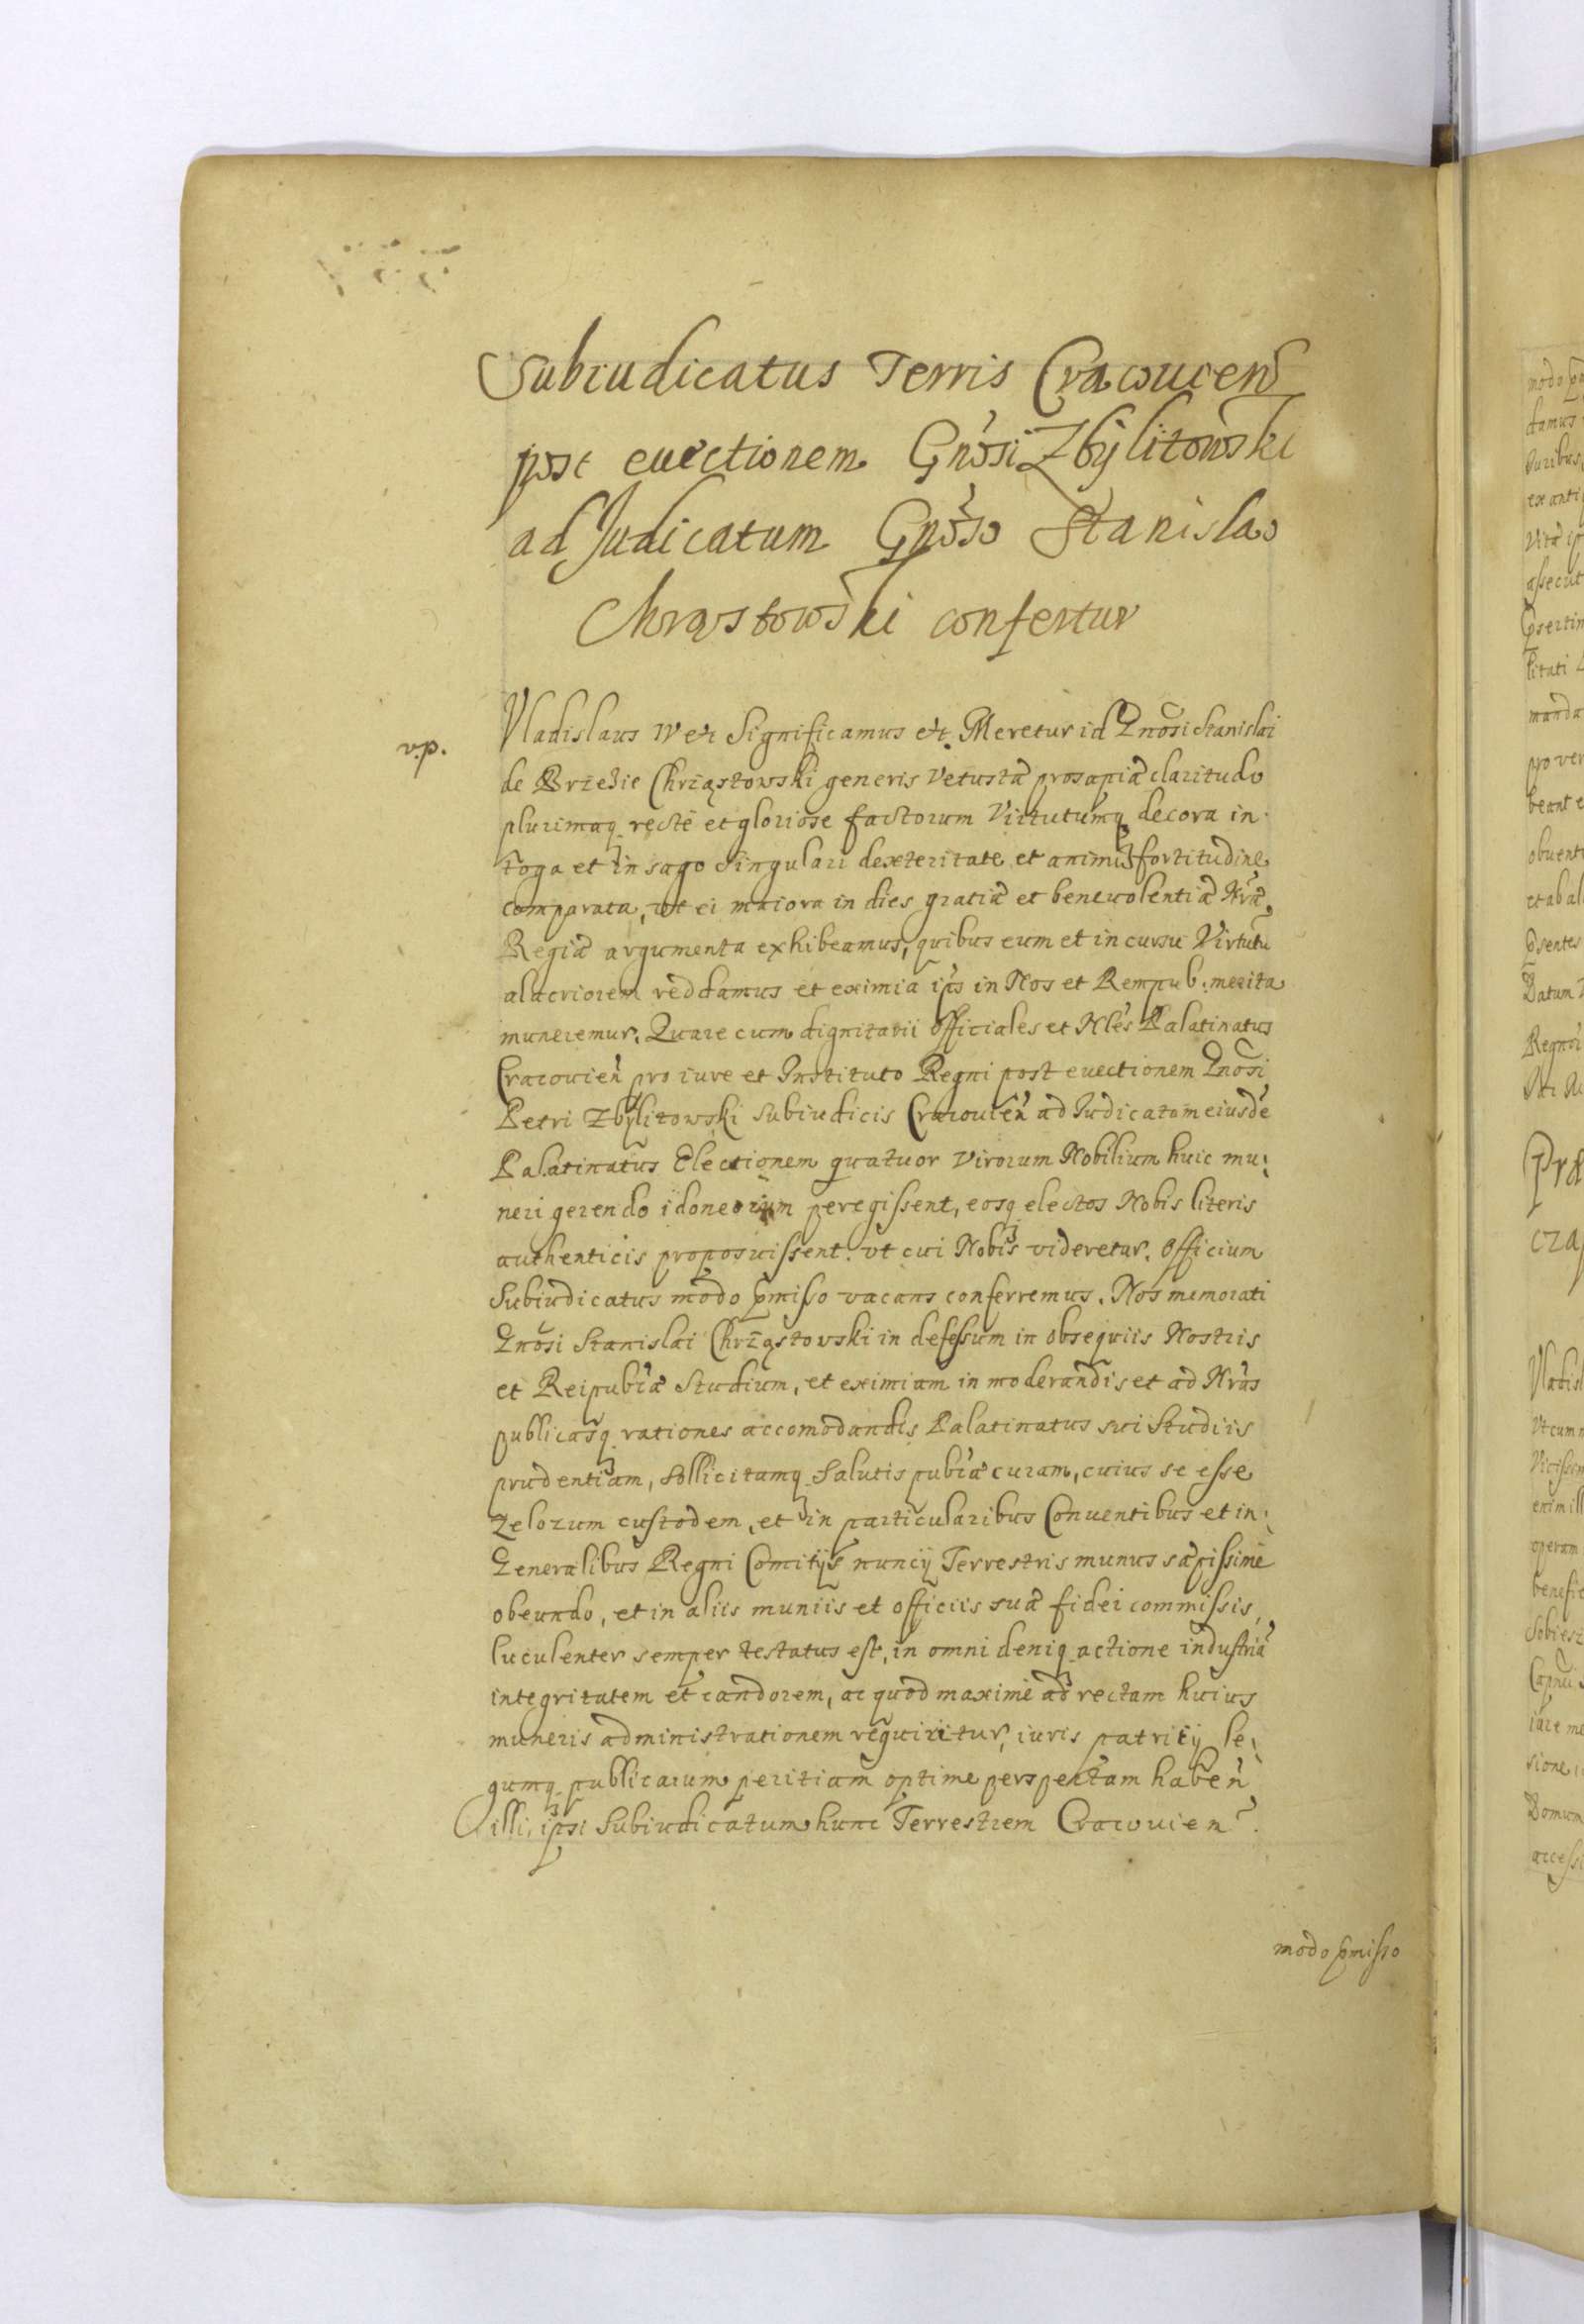 Subiudicatus Terris Cracouien
post euectionem Gnosi Zbÿlitowski
ad Judicatum Gnoso Stanislao
Chrząstowski confertur
v.p.
Vladislaus IV etc Significamus etc. Meretur id Gnosi Stanislai
de Brzezie Chrząstowski generis vetusta prosapia claritudo
plurimaq recte et gloriose factorum Virtutumq decora in
toga et in sago singulari dexteritate et animi fortitudine
comparata, ut ei maiora in dies gratiæ et beneuolentiæ Nræ
Regiæ argumenta exhibeamus, quibus eum et in cursu Virtutu
alacriorem reddamus et eximia ips in Nos et Rempub: merita
muneremur. Quare cum dignitarii officiales et Nles Palatinatus
Cracouien pro iure et Instituto Regni post euectionem Gnosi
Petri Zbylitowski Subiudicis Cracouien ad Judicatum eiusde
Palatinatus Electionem quatuor Virorum Nobilium huic mu:
neri gerendo idoneorum peregissent, eosq electos Nobis literis
authenticis proposuissent. ut cui Nobis videretur. Officium
Subiudicatus modo pmisso vacans conferremus. Nos memorati
Gnosi Stanislai Chrząstowski in defessum in obsequiis Nostris
et Reipublæ Studium, et eximiam in moderandis et ad Nras
publicasq rationes accomodandis Palatinatus sui Studiis
prudentiam, sollicitamq Salutis publæ curam, cuius se esse
zelozum custodem, et in particularibus Conuentibus et in:
Generalibus Regni Comitijs nuncij Terrestris munus sæpissime
obeundo, et in aliis muniis et officiis suæ fidei commissis,
luculenter semper testatus est, in omni deniq actione industriæ
integritatem et candorem, ac quod maxime ad rectam huius
muneris administrationem requiritur, iuris patritij le:
gumq publicarum peritiam optime perspectam haben
illi ipsi Subiudicatum hunc Terrestrem Cracouien.
modo pmisso